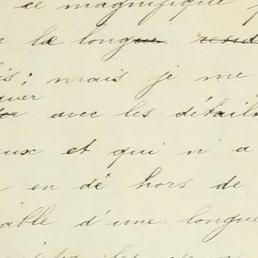 ce magnifique
le longue
; mais je me
quer
avec les détails
eux et qui n'a
en dé hors de
able d'une longue